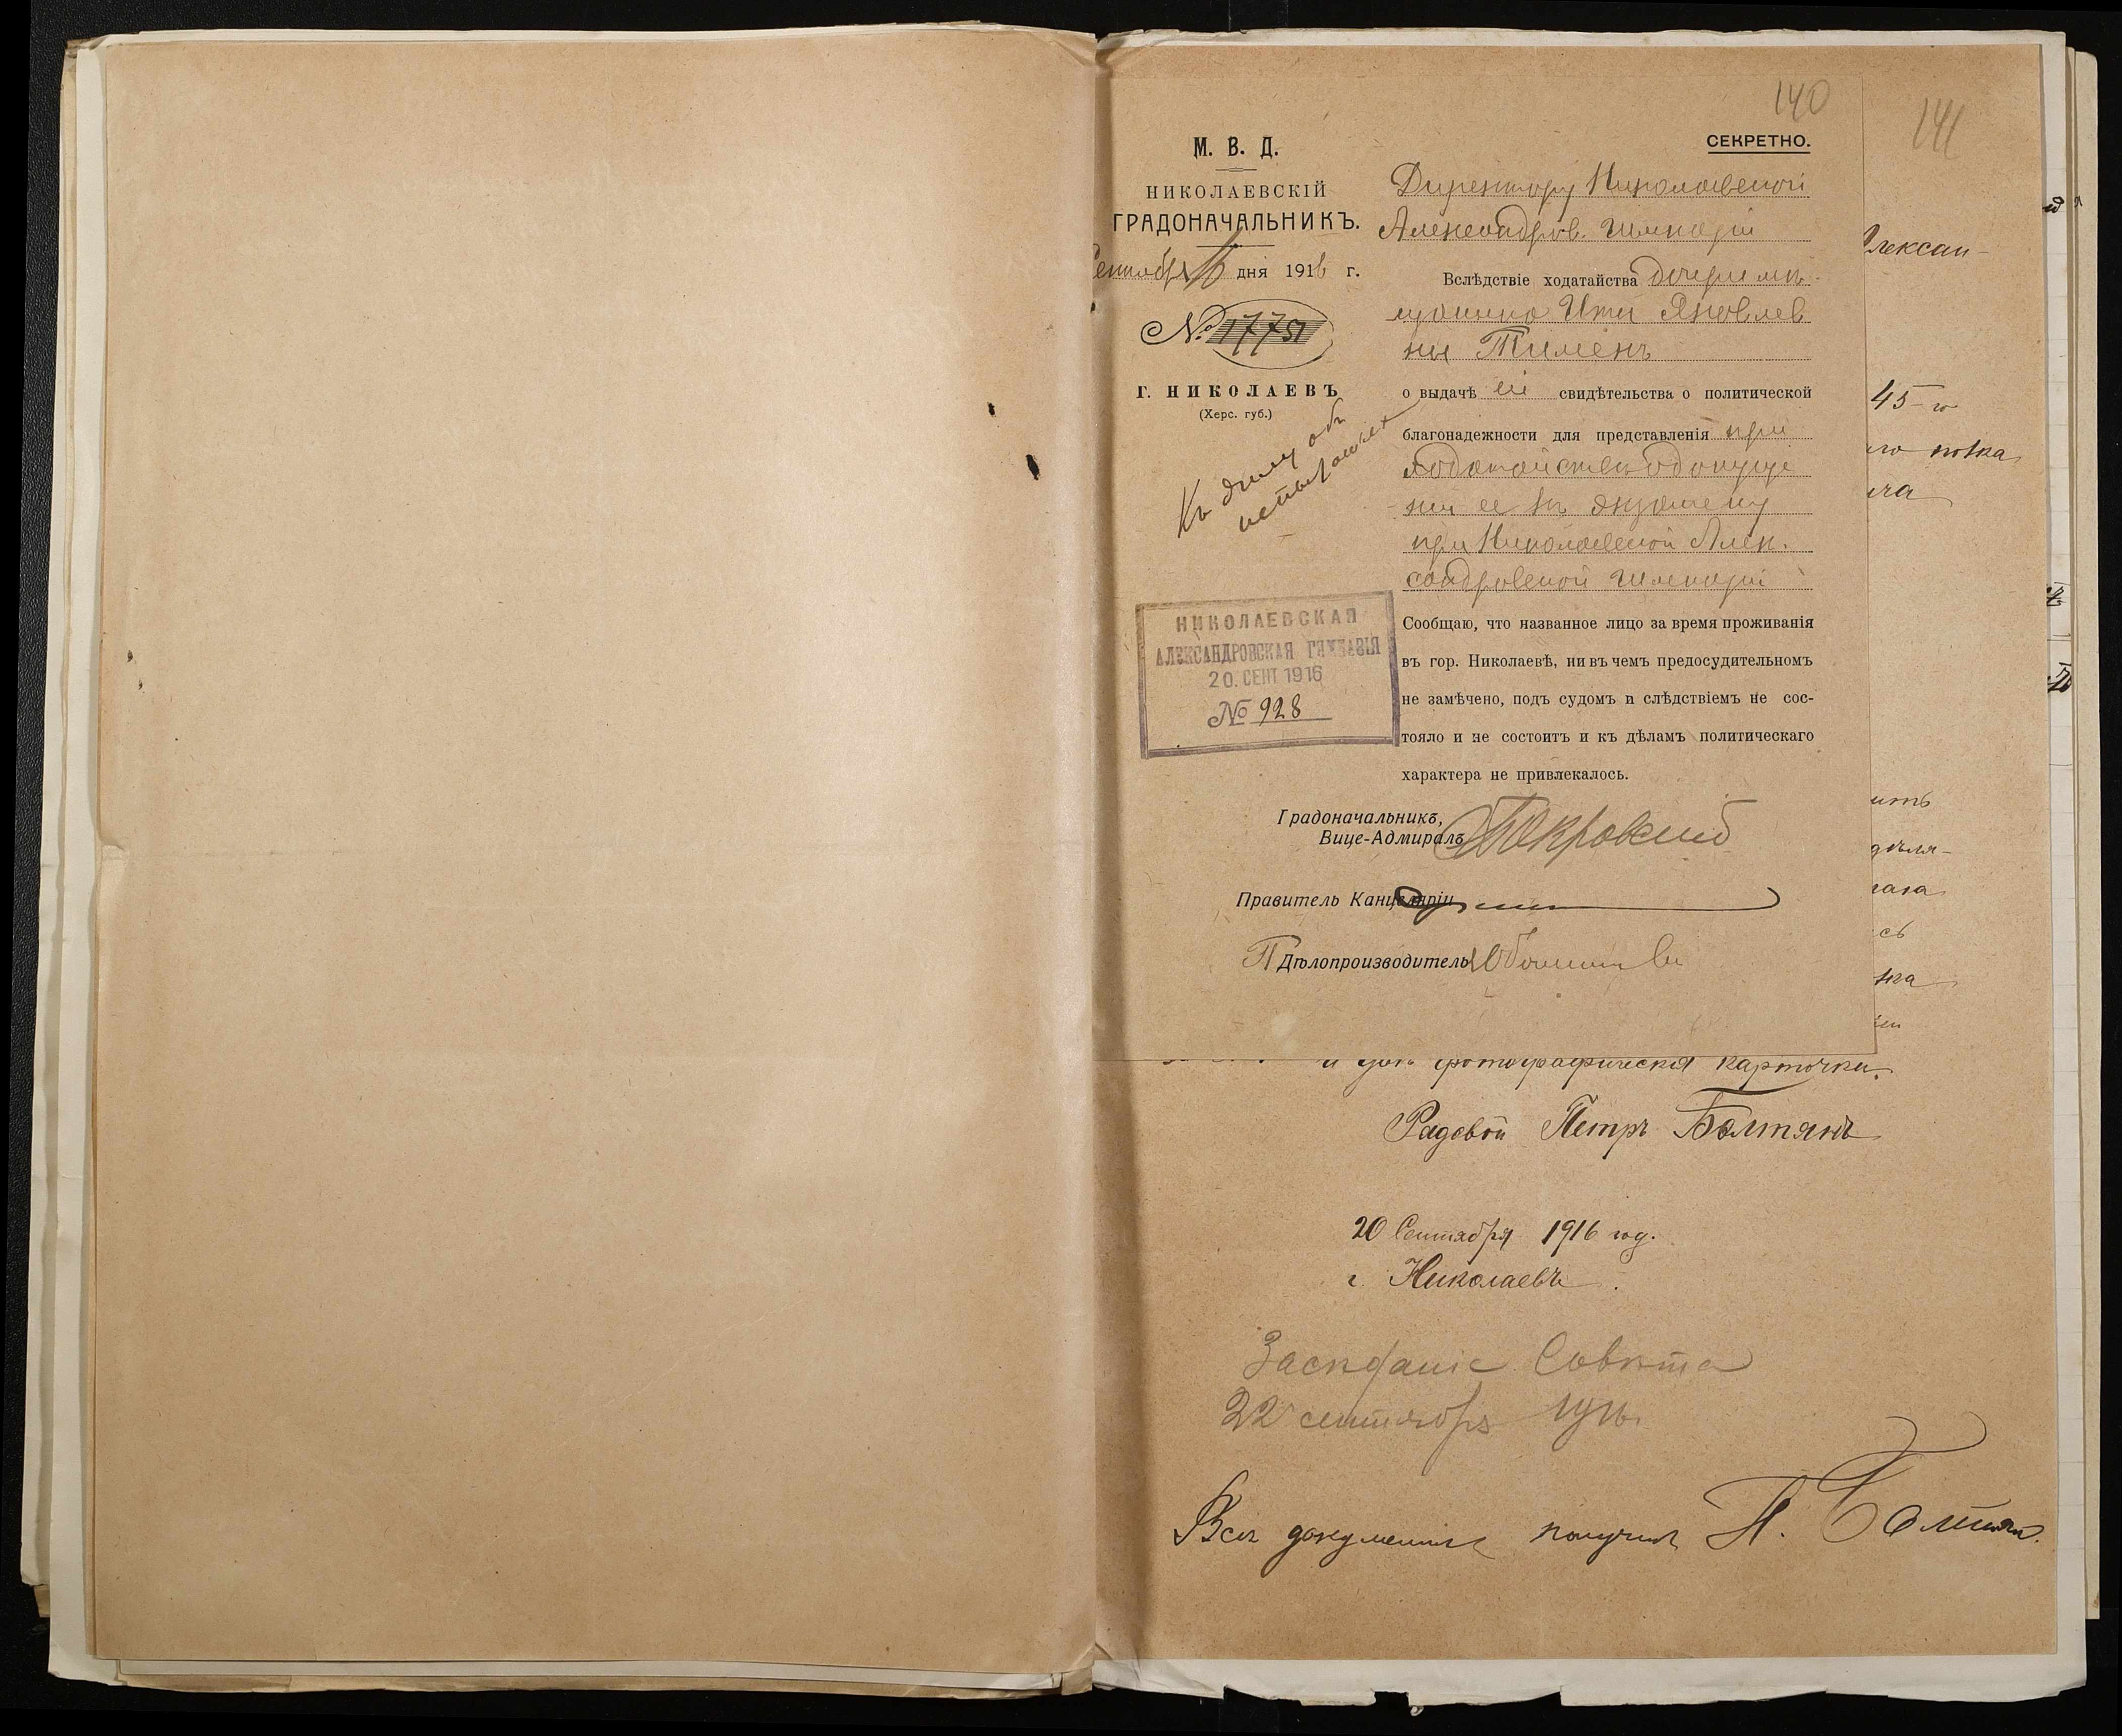 140
141
М. В. Д.
НИКОЛАЕВСКІЙ
ГРАДОНАЧАЛЬНИКЪ.
Сентября 16 дня 1916 г.
№ 17751
Г. НИКОЛАЕВЪ
(Херс. губ.)
Къ дѣлу объ
испытаніях
СЕКРЕТНО.
Директору Николаевской
Александров. Гимназіи
Вслѣдствіе ходатайства дочери мѣ-
щанина Яковлев
ны Тименъ
о выдачѣ ей свидѣтельства о политической
благонадежности для представленія при
ходатайствѣ о допуще
ніи ее къ экзамену
при Николаевской Алек.
сандровской Гимназіи
Сообщаю, что названное лицо за время проживанія
въ гор. Николаевѣ, ни въ чемъ предосудительномъ
не замѣчено, подъ судомъ и слѣдствіемъ не сос-
тояло и не состоитъ и къ дѣламъ политическаго
характера не привлекалось.
НИКОЛАЕВСКАЯ
АЛЕКСАНДРОВСКАЯ ГИМНАЗІЯ
20. СЕНТ 1916
№ 928
Градоначальникъ,
Вице-Адмиралъ Покровский
Правитель Канцеляріи
П Дѣлопроизводитель
Алексан-
45-го
го полка
ить
дѣля-
сь
фотографическія карточки.
Рядовой Петръ Болтянъ
20 Сентября 1916 год.
г. Николаевъ.
Засѣданіе Совѣта
22 сентября 1916.
Всѣ документы получилъ П. Болтянъ.